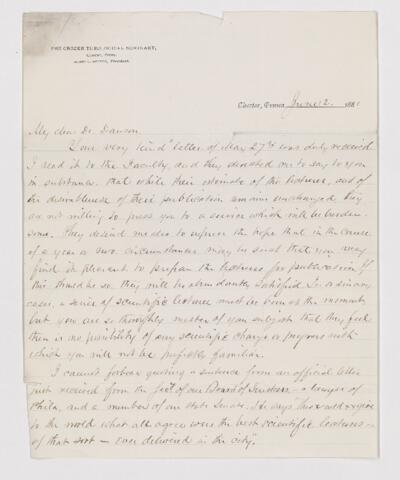 THE CROZER THEOLOGICAL SEMINARY,
Chester, Penna. June 2, 188
My dear Dr. Dawson,
Your very kind letter of May 27th was duly received.
I read it to the Faculty, and they desired me to say to you
in substance, that while their estimate of the lectures, and of
the desirableness of their publication remains unchanged, they
are not willing to press you to a service which will be burden-
some. They desired me also to express the hope that in the course
of a year or two circumstances may be such that you may
find it pleasant to prepare the lectures for publication. If
this should be so, they will be abundantly satisfied. In ordinary
cases, a series of scientific lectures must be given at the moment,
but you are so thoroughly master of your subject that they feel
there is no possibility of any scientific change or progress with
which you will not be perfectly familiar.
I cannot forbear quoting a sentence from an official letter
just received from the of our Board of Trustees - a lawyer of
Phila, and a member of our State Senate. He says "this would give
to the world what all agree were the best scientific lectures -
of that sort - ever delivered in the city".